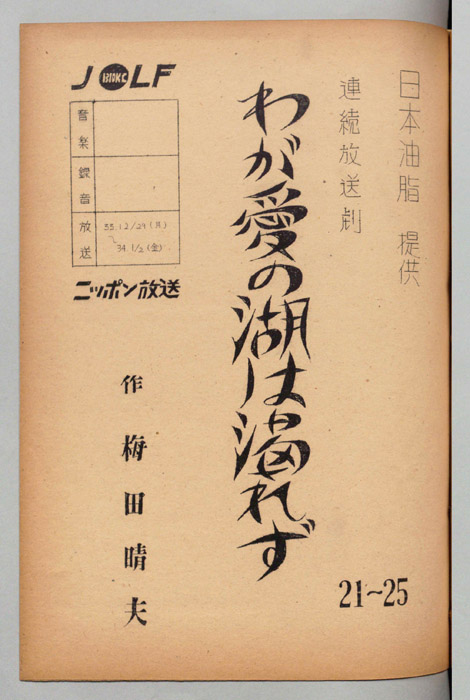 日本油脂 提供
連続放送劇
わが愛の湖は涸れず
21~25
JOLF
音楽
録音
放送
33.12/29(月)
34 1/2(金)
ニッポン放送
作 梅田晴夫